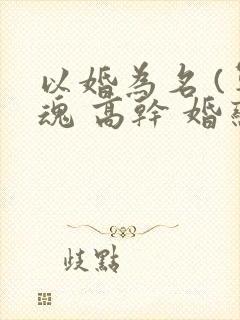 以婚為名(
魂 高幹 婚
歧點